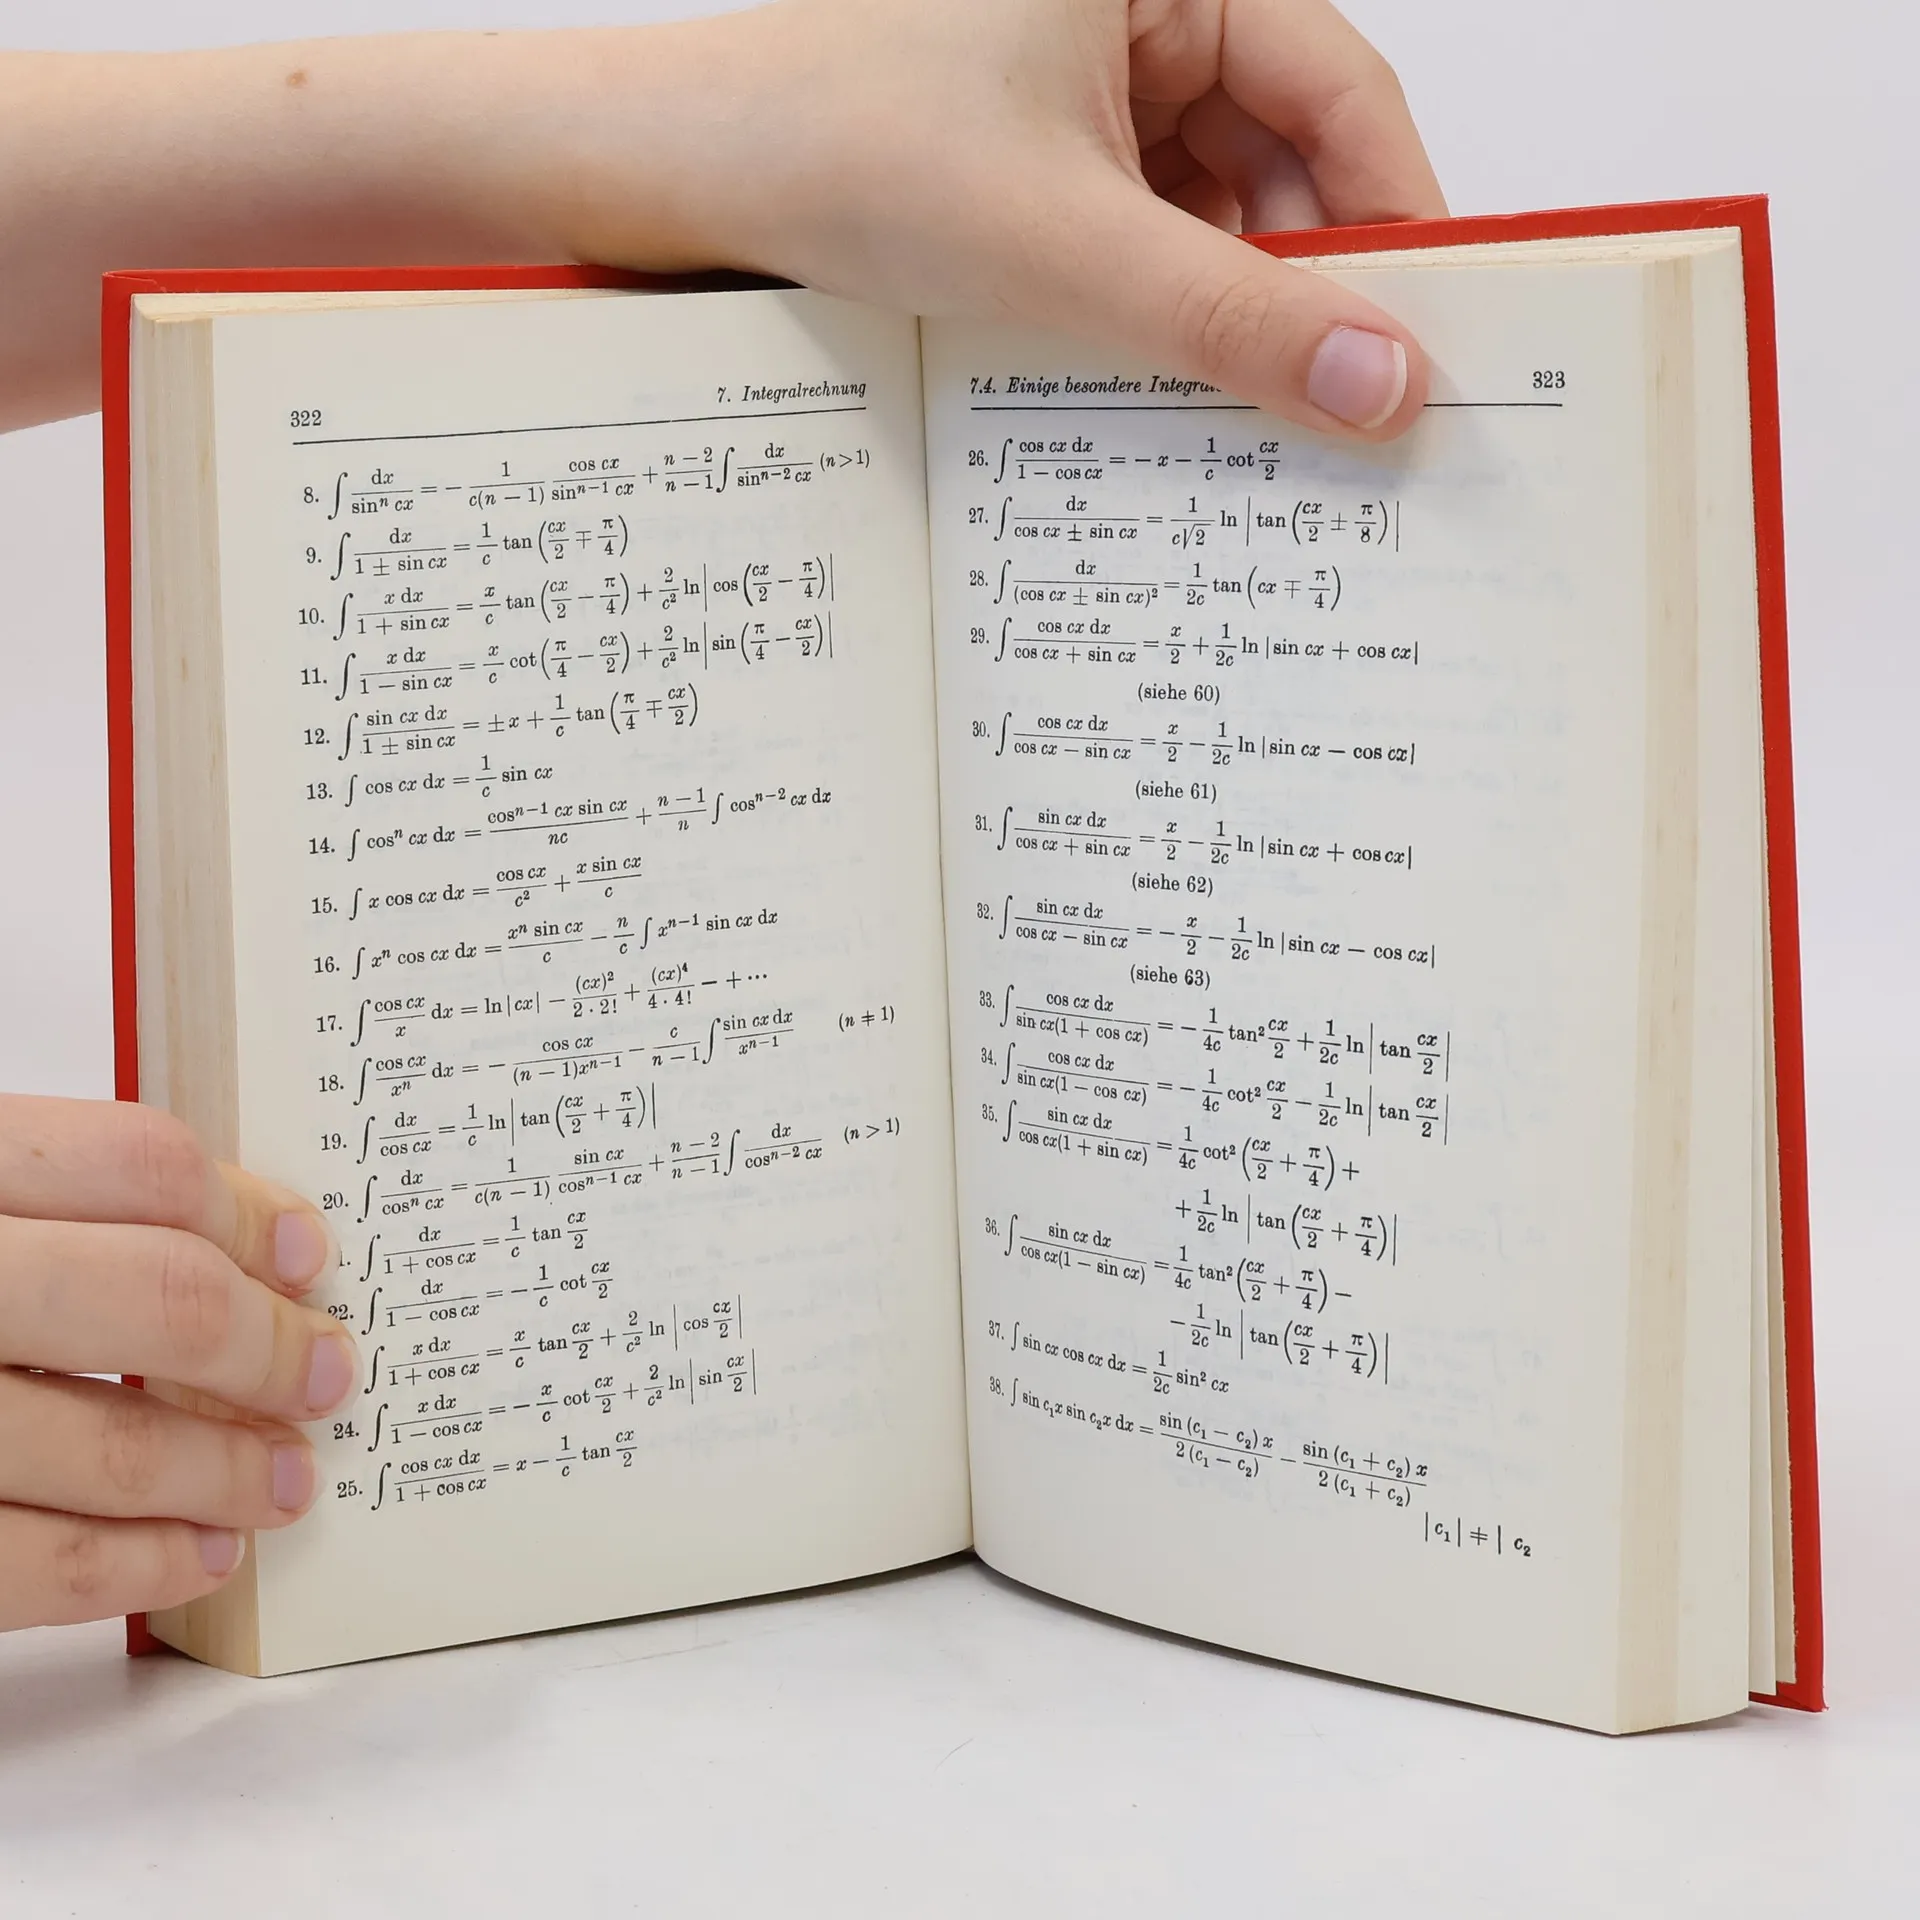 322
7. Integralrechnung
8. ∫ dx / sinⁿ cx = − 1 / c(n − 1) cos cx / sinⁿ⁻¹ cx + n − 2 / n − 1 ∫ dx / sinⁿ⁻² cx (n > 1)
9. ∫ dx / 1 ± sin cx = 1/c tan (cx/2 ∓ π/4)
10. ∫ x dx / 1 + sin cx = x/c tan (cx/2 − π/4) + 2/c² ln |cos (cx/2 − π/4)|
11. ∫ x dx / 1 − sin cx = x/c cot (π/4 − cx/2) + 2/c² ln |sin (π/4 − cx/2)|
12. ∫ sin cx dx / 1 ± sin cx = ± x + 1/c tan (π/4 ∓ cx/2)
13. ∫ cos cx dx = 1/c sin cx
14. ∫ cosⁿ cx dx = cosⁿ⁻¹ cx sin cx / nc + n − 1 / n ∫ cosⁿ⁻² cx dx
15. ∫ x cos cx dx = cos cx / c² + x sin cx / c
16. ∫ xⁿ cos cx dx = xⁿ sin cx / c − n/c ∫ xⁿ⁻¹ sin cx dx
17. ∫ cos cx / x dx = ln |cx| − (cx)² / 2 · 2! + (cx)⁴ / 4 · 4! − + ···
18. ∫ cos cx / xⁿ dx = − cos cx / (n − 1)xⁿ⁻¹ − c / n − 1 ∫ sin cx dx / xⁿ⁻¹ (n ≠ 1)
19. ∫ dx / cos cx = 1/c ln |tan (cx/2 + π/4)|
20. ∫ dx / cosⁿ cx = 1 / c(n − 1) sin cx / cosⁿ⁻¹ cx + n − 2 / n − 1 ∫ dx / cosⁿ⁻² cx (n > 1)
1. ∫ dx / 1 + cos cx = 1/c tan cx/2
22. ∫ dx / 1 − cos cx = − 1/c cot cx/2
∫ x dx / 1 + cos cx = x/c tan cx/2 + 2/c² ln |cos cx/2|
24. ∫ x dx / 1 − cos cx = − x/c cot cx/2 + 2/c² ln |sin cx/2|
25. ∫ cos cx dx / 1 + cos cx = x − 1/c tan cx/2
7.4. Einige besondere
323
26. ∫ cos cx dx / 1 − cos cx = − x − 1/c cot cx/2
27. ∫ dx / cos cx ± sin cx = 1 / c√2 ln |tan (cx/2 ± π/8)|
28. ∫ dx / (cos cx ± sin cx)² = 1/2c tan (cx ∓ π/4)
29. ∫ cos cx dx / cos cx + sin cx = x/2 + 1/2c ln |sin cx + cos cx|
(siehe 60)
30. ∫ cos cx dx / cos cx − sin cx = x/2 − 1/2c ln |sin cx − cos cx|
(siehe 61)
31. ∫ sin cx dx / cos cx + sin cx = x/2 − 1/2c ln |sin cx + cos cx|
(siehe 62)
32. ∫ sin cx dx / cos cx − sin cx = − x/2 − 1/2c ln |sin cx − cos cx|
(siehe 63)
33. ∫ cos cx dx / sin cx(1 + cos cx) = − 1/4c tan² cx/2 + 1/2c ln |tan cx/2|
34. ∫ cos cx dx / sin cx(1 − cos cx) = − 1/4c cot² cx/2 − 1/2c ln |tan cx/2|
35. ∫ sin cx dx / cos cx(1 + sin cx) = 1/4c cot² (cx/2 + π/4) +
+ 1/2c ln |tan (cx/2 + π/4)|
36. ∫ sin cx dx / cos cx(1 − sin cx) = 1/4c tan² (cx/2 + π/4) −
− 1/2c ln |tan (cx/2 + π/4)|
37. ∫ sin cx cos cx dx = 1/2c sin² cx
38. ∫ sin c₁x sin c₂x dx = sin (c₁ − c₂) x / 2 (c₁ − c₂) − sin (c₁ + c₂) x / 2 (c₁ + c₂)
|c₁| ≠ | c₂